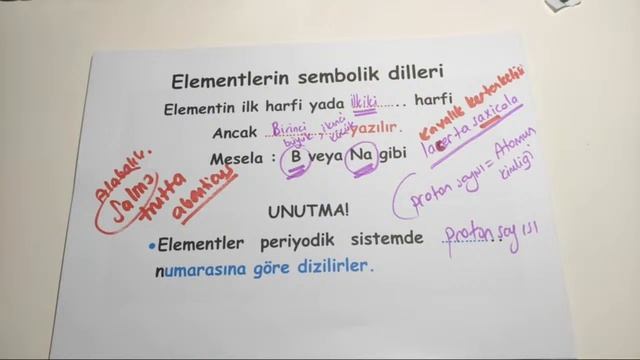 Elementlerin sembolik dilleri
Elementin ilk harfi yada ilkiki...... harfi
Ancak Birinci büyük, ikinci küçük yazılır.
Mesela : B veya Na gibi
Kayalık kertenkelesi
lacerta saxicola
Alabalık.
Salmo
trutta
proton sayısı = Atomun
kimliği
UNUTMA!
•Elementler periyodik sistemde proton sayısı
numarasına göre dizilirler.